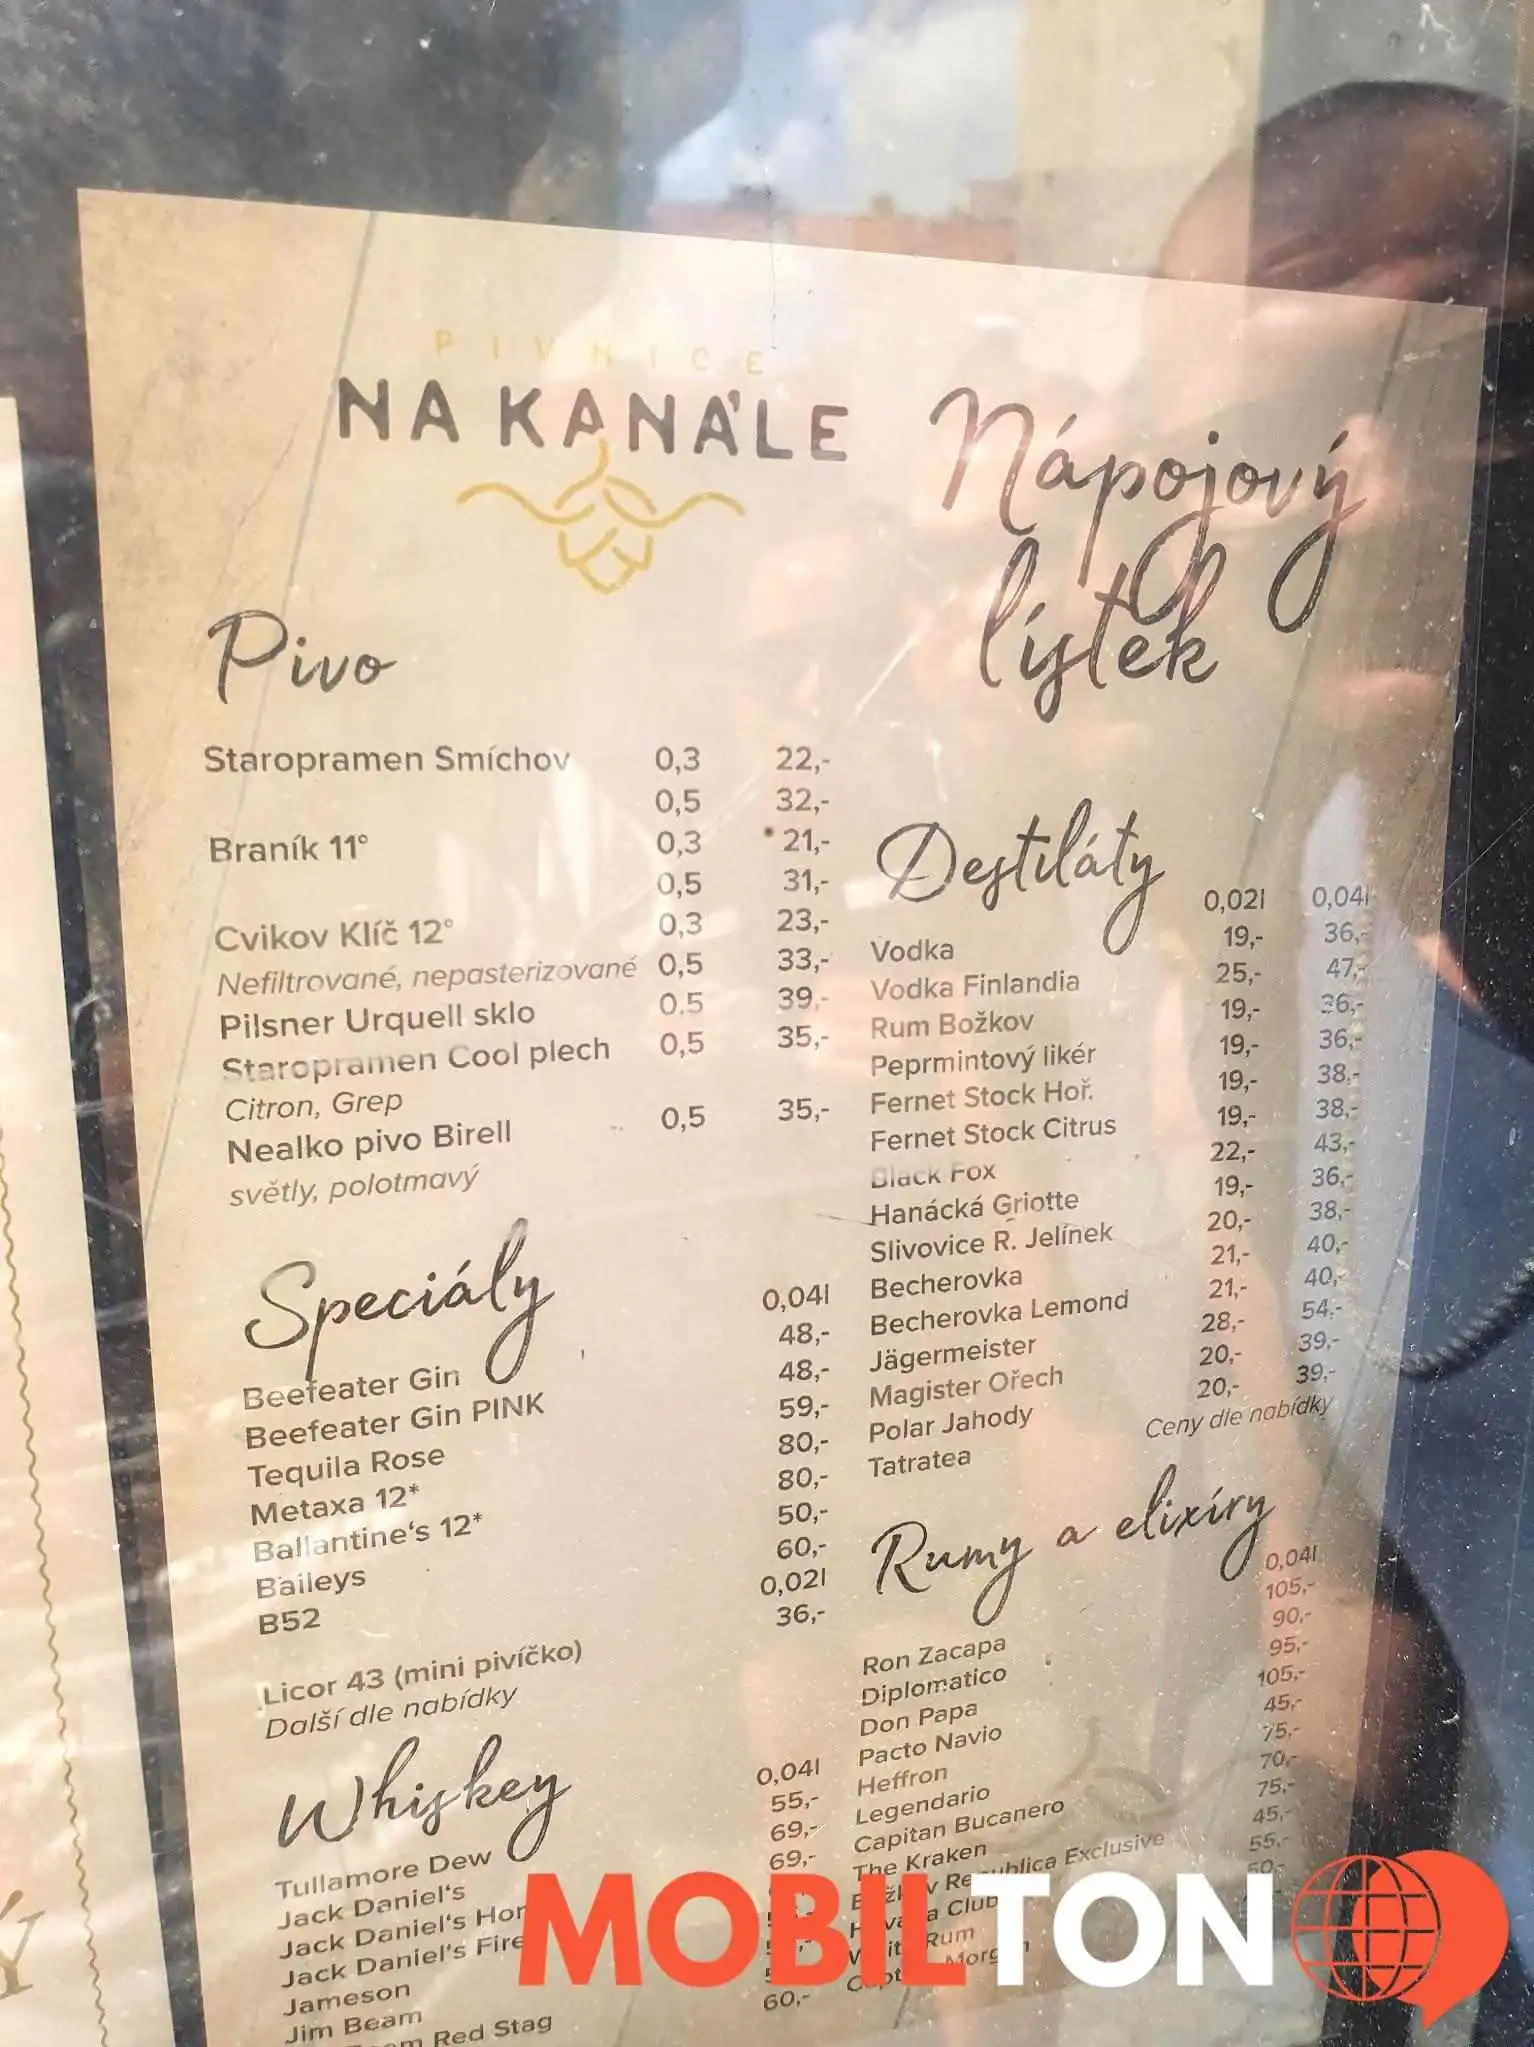 PIVNICE
NA KANÁLE
Nápojový
lístek
Pivo
Staropramen Smíchov 0,3 22,-
0,5 32,-
Braník 11° 0,3 21,-
0,5 31,-
Cvikov Klíč 12° 0,3 23,-
Nefiltrované, nepasterizované 0,5 33,-
Pilsner Urquell sklo 0,5 39,-
Staropramen Cool plech 0,5 35,-
Citron, Grep
Nealko pivo Birell 0,5 35,-
světly, polotmavý
Speciály
0,04l
Beefeater Gin 48,-
Beefeater Gin PINK 48,-
Tequila Rose 59,-
Metaxa 12* 80,-
Ballantine's 12* 80,-
Baileys 50,-
B52 60,-
0,02l
Licor 43 (mini pivíčko) 36,-
Další dle nabídky
Whiskey
0,04l
Tullamore Dew 55,-
Jack Daniel's 69,-
Jack Daniel's 69,-
Jack Daniel's Fire
Jameson
Jim Beam
Red Stag 60,-
Destiláty
0,02l 0,04l
Vodka 19,- 36,-
Vodka Finlandia 25,- 47,-
Rum Božkov 19,- 36,-
Peprmintový likér 19,- 36,-
Fernet Stock Hoř. 19,- 38,-
Fernet Stock Citrus 19,- 38,-
Black Fox 22,- 43,-
Hanácká Griotte 19,- 36,-
Slivovice R. Jelínek 20,- 38,-
Becherovka 21,- 40,-
Becherovka Lemond 21,- 40,-
Jägermeister 28,- 54,-
Magister Ořech 20,- 39,-
Polar Jahody 20,- 39,-
Tatratea Ceny dle nabídky
Rumy a elixíry
0,04l
Ron Zacapa 105,-
Diplomatico 90,-
Don Papa 95,-
Pacto Navio 105,-
Heffron 45,-
Legendario 75,-
Capitan Bucanero 70,-
The Kraken 75,-
Exclusive 45,-
Club 55,-
Rum
MOBILTON